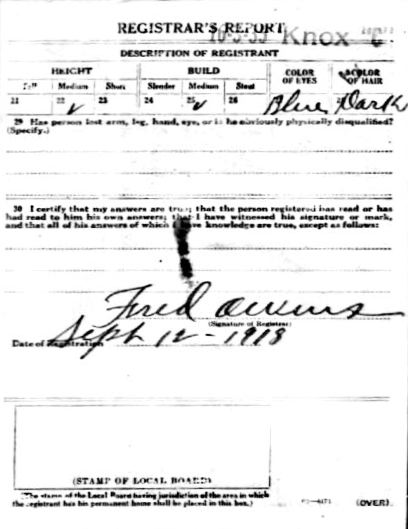 REGISTRAR'S REPORT
10-3-35 Knox "C"
DESCRIPTION OF REGISTRANT
HEIGHT BUILD COLOR OF EYES COLOR OF HAIR
Tall Medium Short Slender Medium Stout
21 22 ✓ 23 24 25 ✓ 26 Blue Dark
29 Has person lost arm, leg, hand, eye, or is he obviously physically disqualified?
(Specify.)
30 I certify that my answers are true; that the person registered has read or has
had read to him his own answers; that I have witnessed his signature or mark,
and that all of his answers of which I have knowledge are true, except as follows:
Fred
(Signature of Registrar)
Date of Registration Sept 12 - 1918
(STAMP OF LOCAL BOARD)
(The stamp of the Local Board having jurisdiction of the area in which
the registrant has his permanent home shall be placed in this box.)
(OVER)